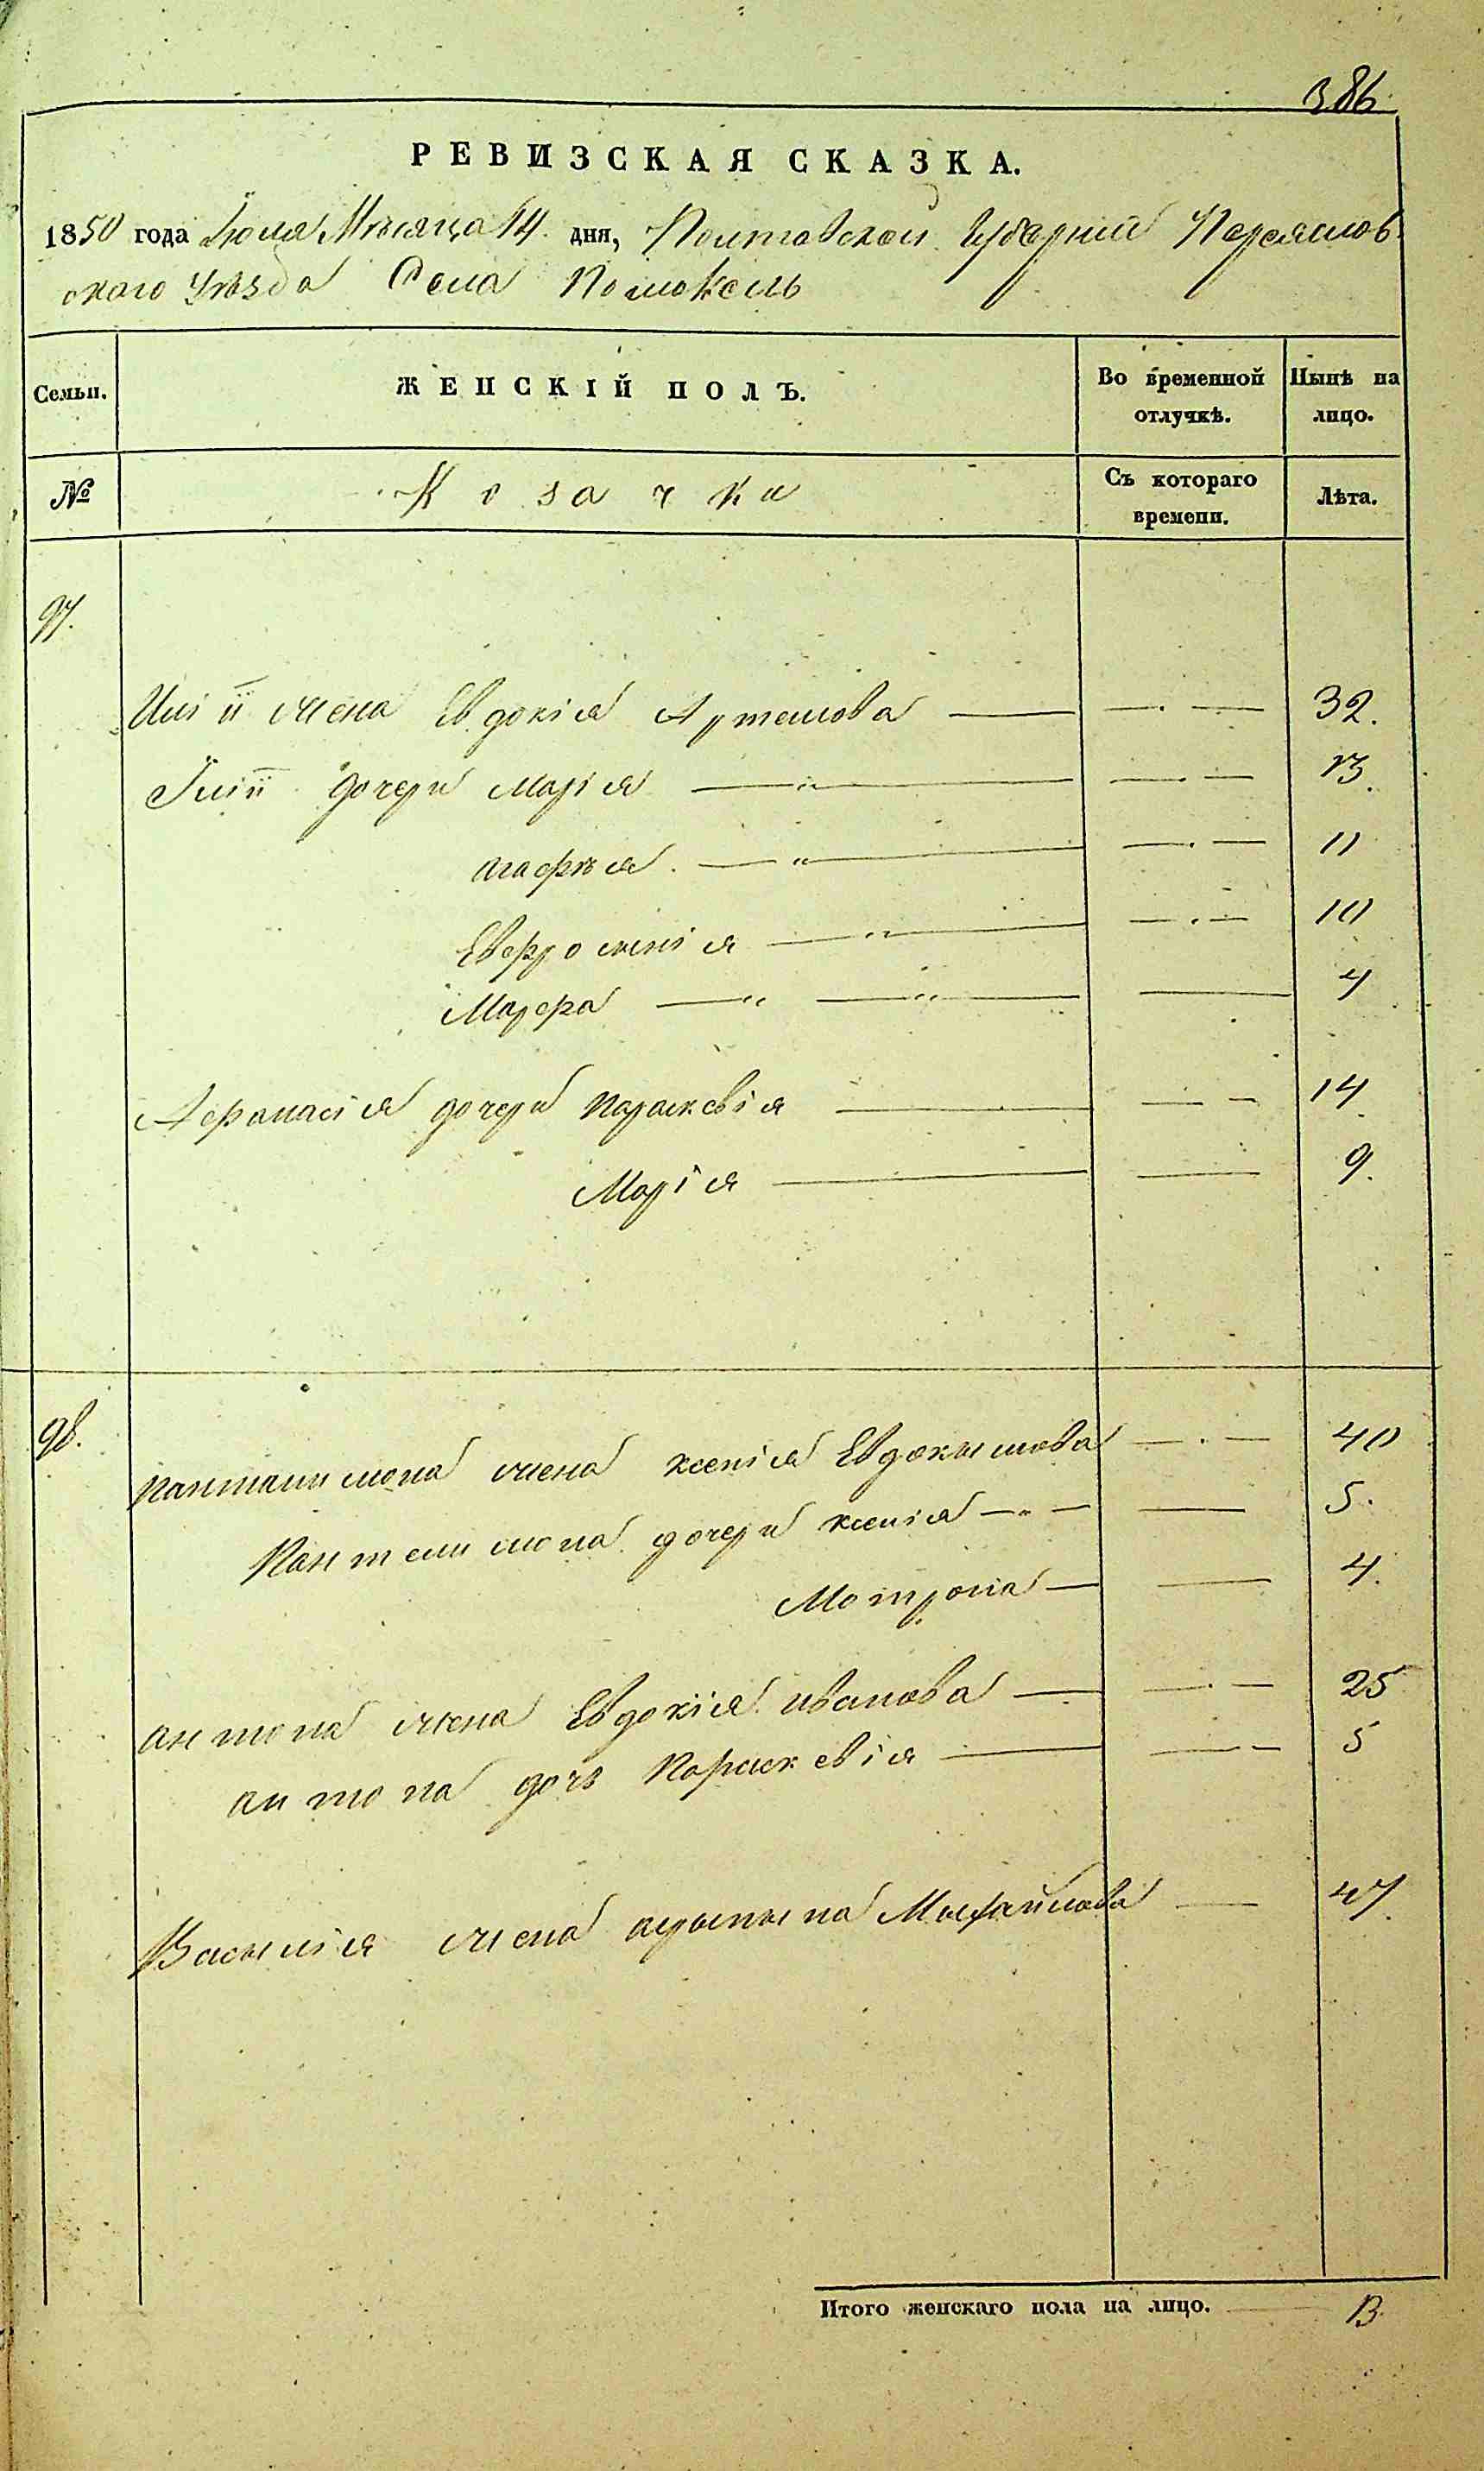 386.
РЕВИЗСКАЯ СКАЗКА.
1850 года Іюля Мѣсяца 14. дня, Полтавской Губерніи Переяслов
скаго Уѣзда Села Помоклъ
Семьи. ЖЕНСКІЙ ПОЛЪ. Во временной отлучкѣ. Нынѣ на лицо.
№ Козачки Съ котораго времени. Лѣта.
97.
Иліи жена Евдокія Артемова 32.
Иліи дочери Марія 13.
Агафія 11
Евфросинія 10
Марфа 4
Афанасія дочери Параскевія 14.
Марія 9.
98.
Пантелимона жена Ксенія Евдокымова 40
Пантелимона дочери Ксенія 5.
Мотрона 4.
Антона жена Евдокія Иванова 25
Антона дочь Параскевія 5
Василія жена Михайлова 47.
Итого женскаго пола на лицо. 13.